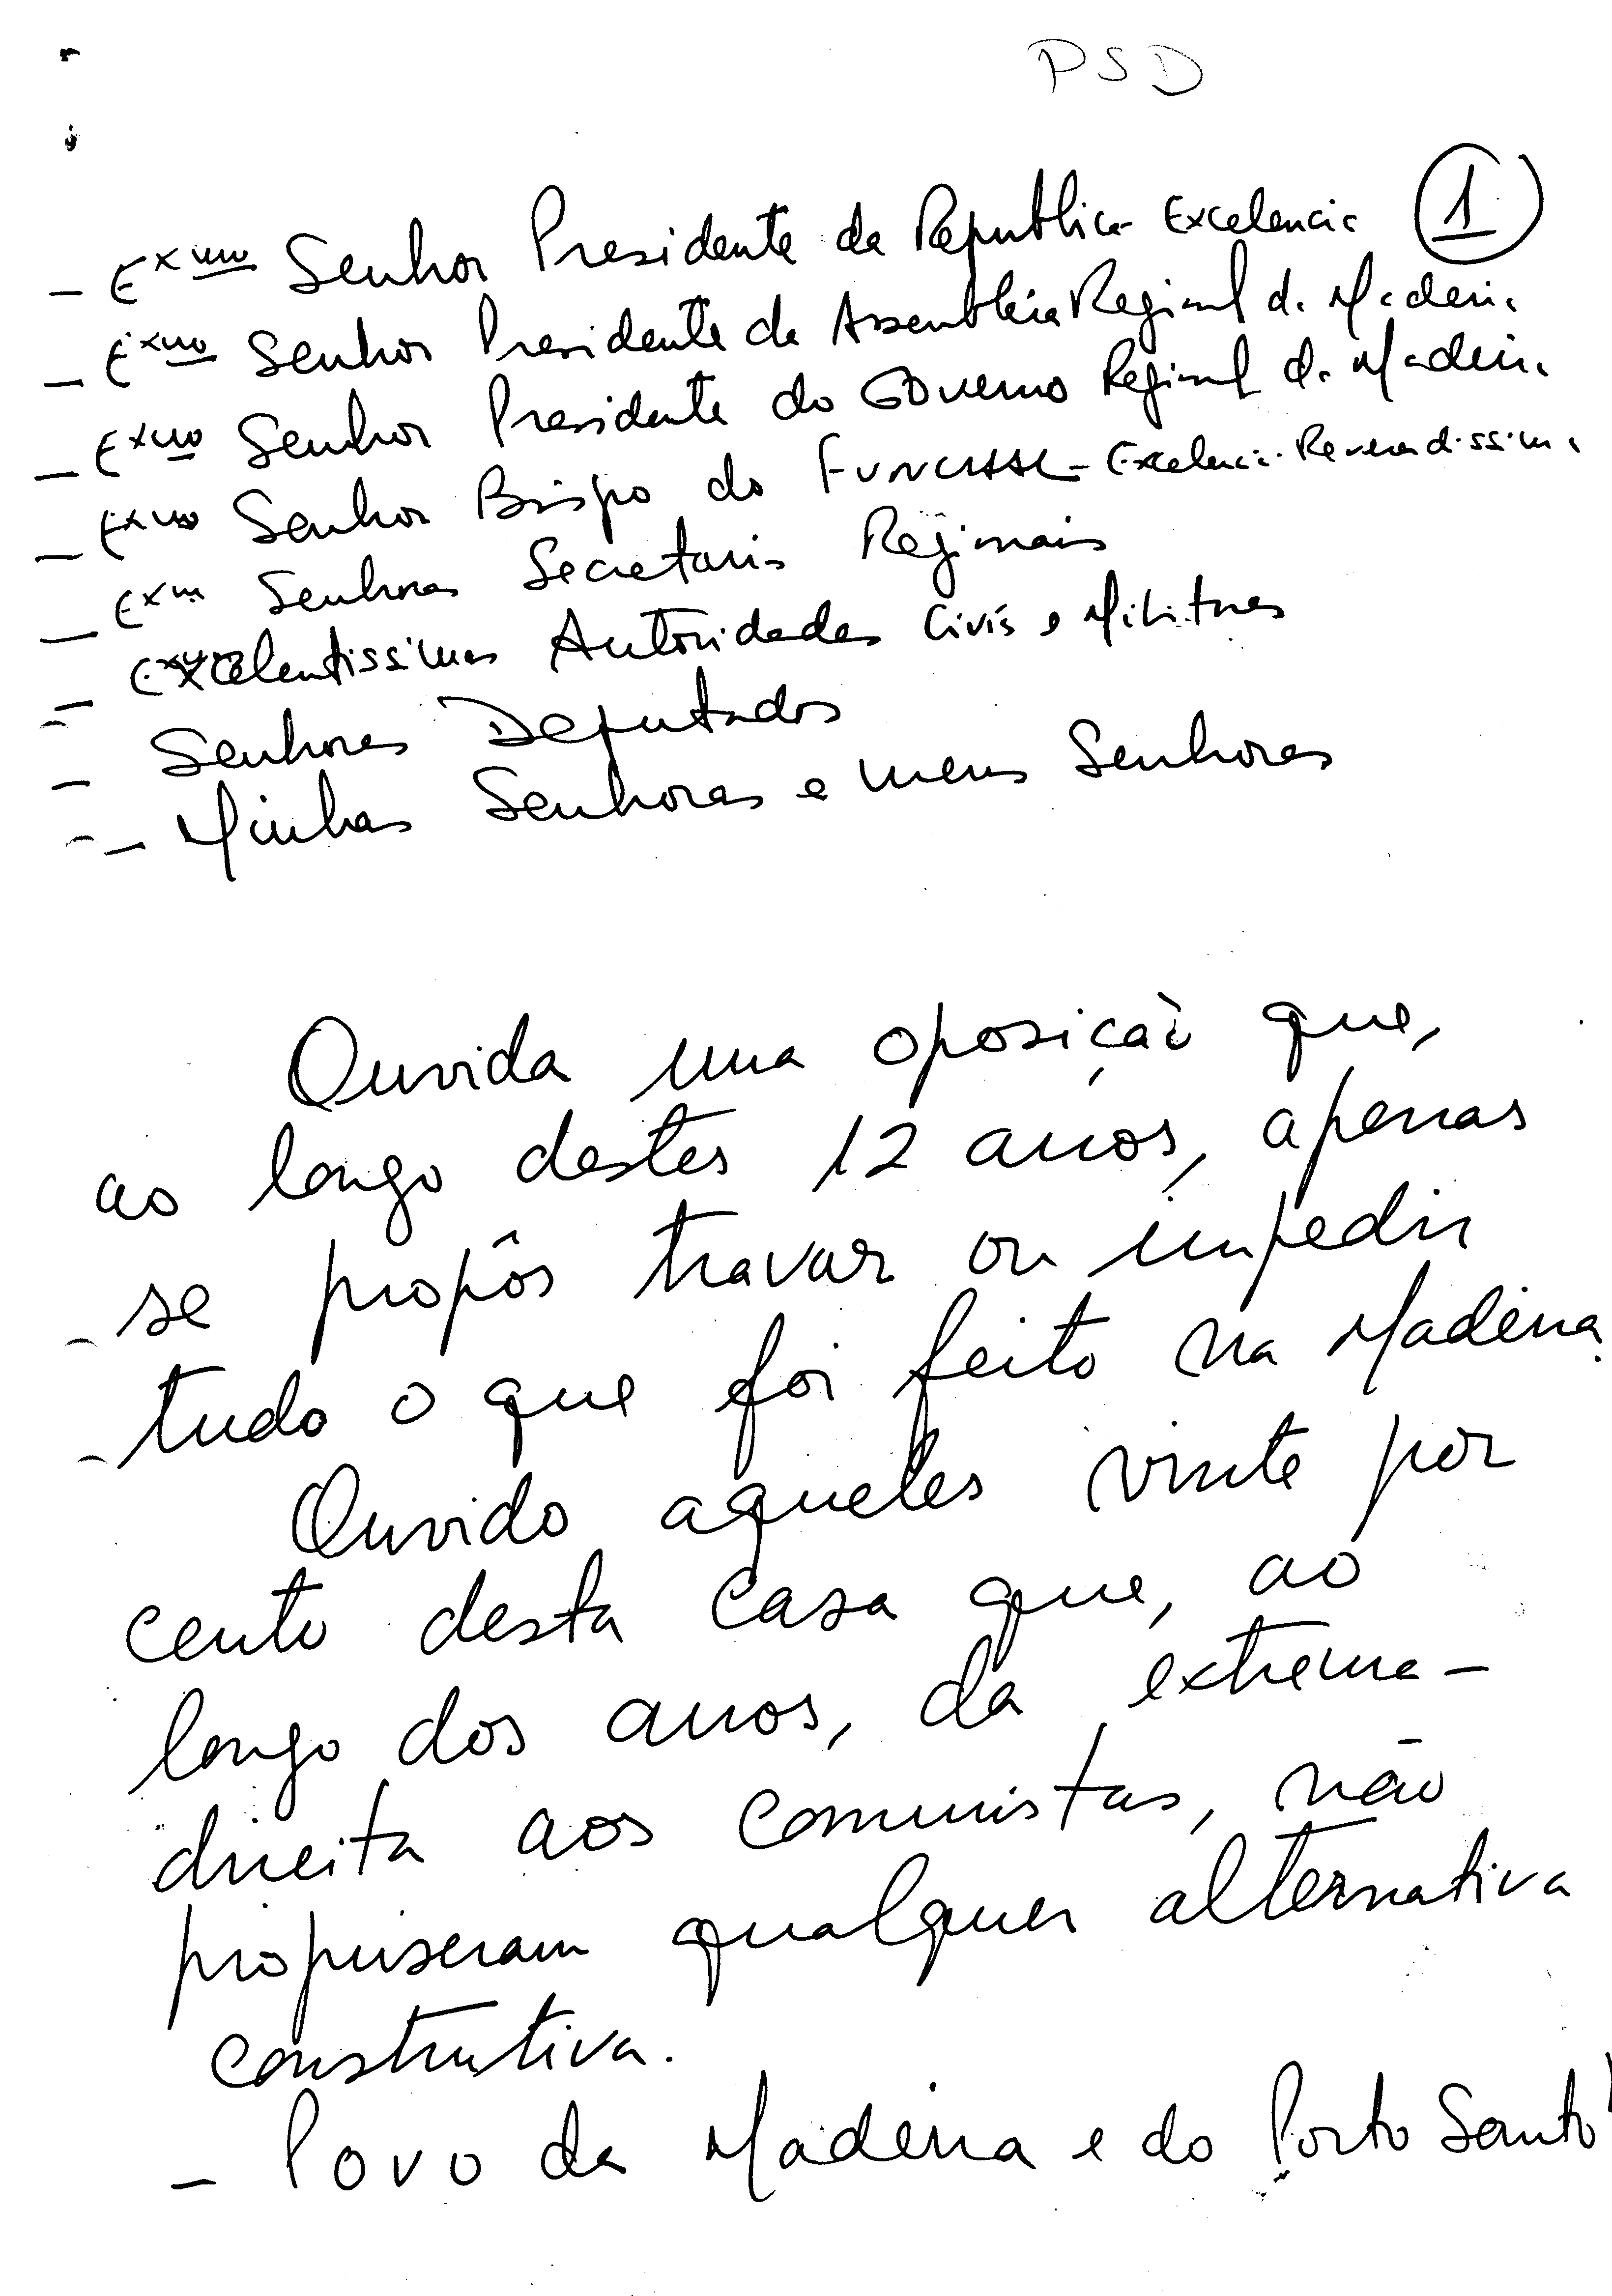 PSD
1
- Exmo Senhor Presidente da Republica - Excelencia
- Exmo Senhor Presidente da Assembleia Regional da Madeira
- Exmo Senhor Presidente do Governo Regional da Madeira
- Exmo Senhor Bispo do FUNCHAL - Excelencia Reverendissima
- Exm Senhores Secretarios Regionais
- Excelentissimas Autoridades Civís e Militares
- Senhores Deputados
- Minhas Senhoras e meus Senhores
Ouvida uma oposição que,
ao longo destes 12 anos, apenas
se propôs travar ou impedir
tudo o que foi feito na Madeira.
Ouvido aqueles vinte por
cento desta casa que, ao
longo dos anos, da extrema-
direita aos comunistas, não
propuseram qualquer alternativa
construtiva.
- Povo da Madeira e do Porto Santo!